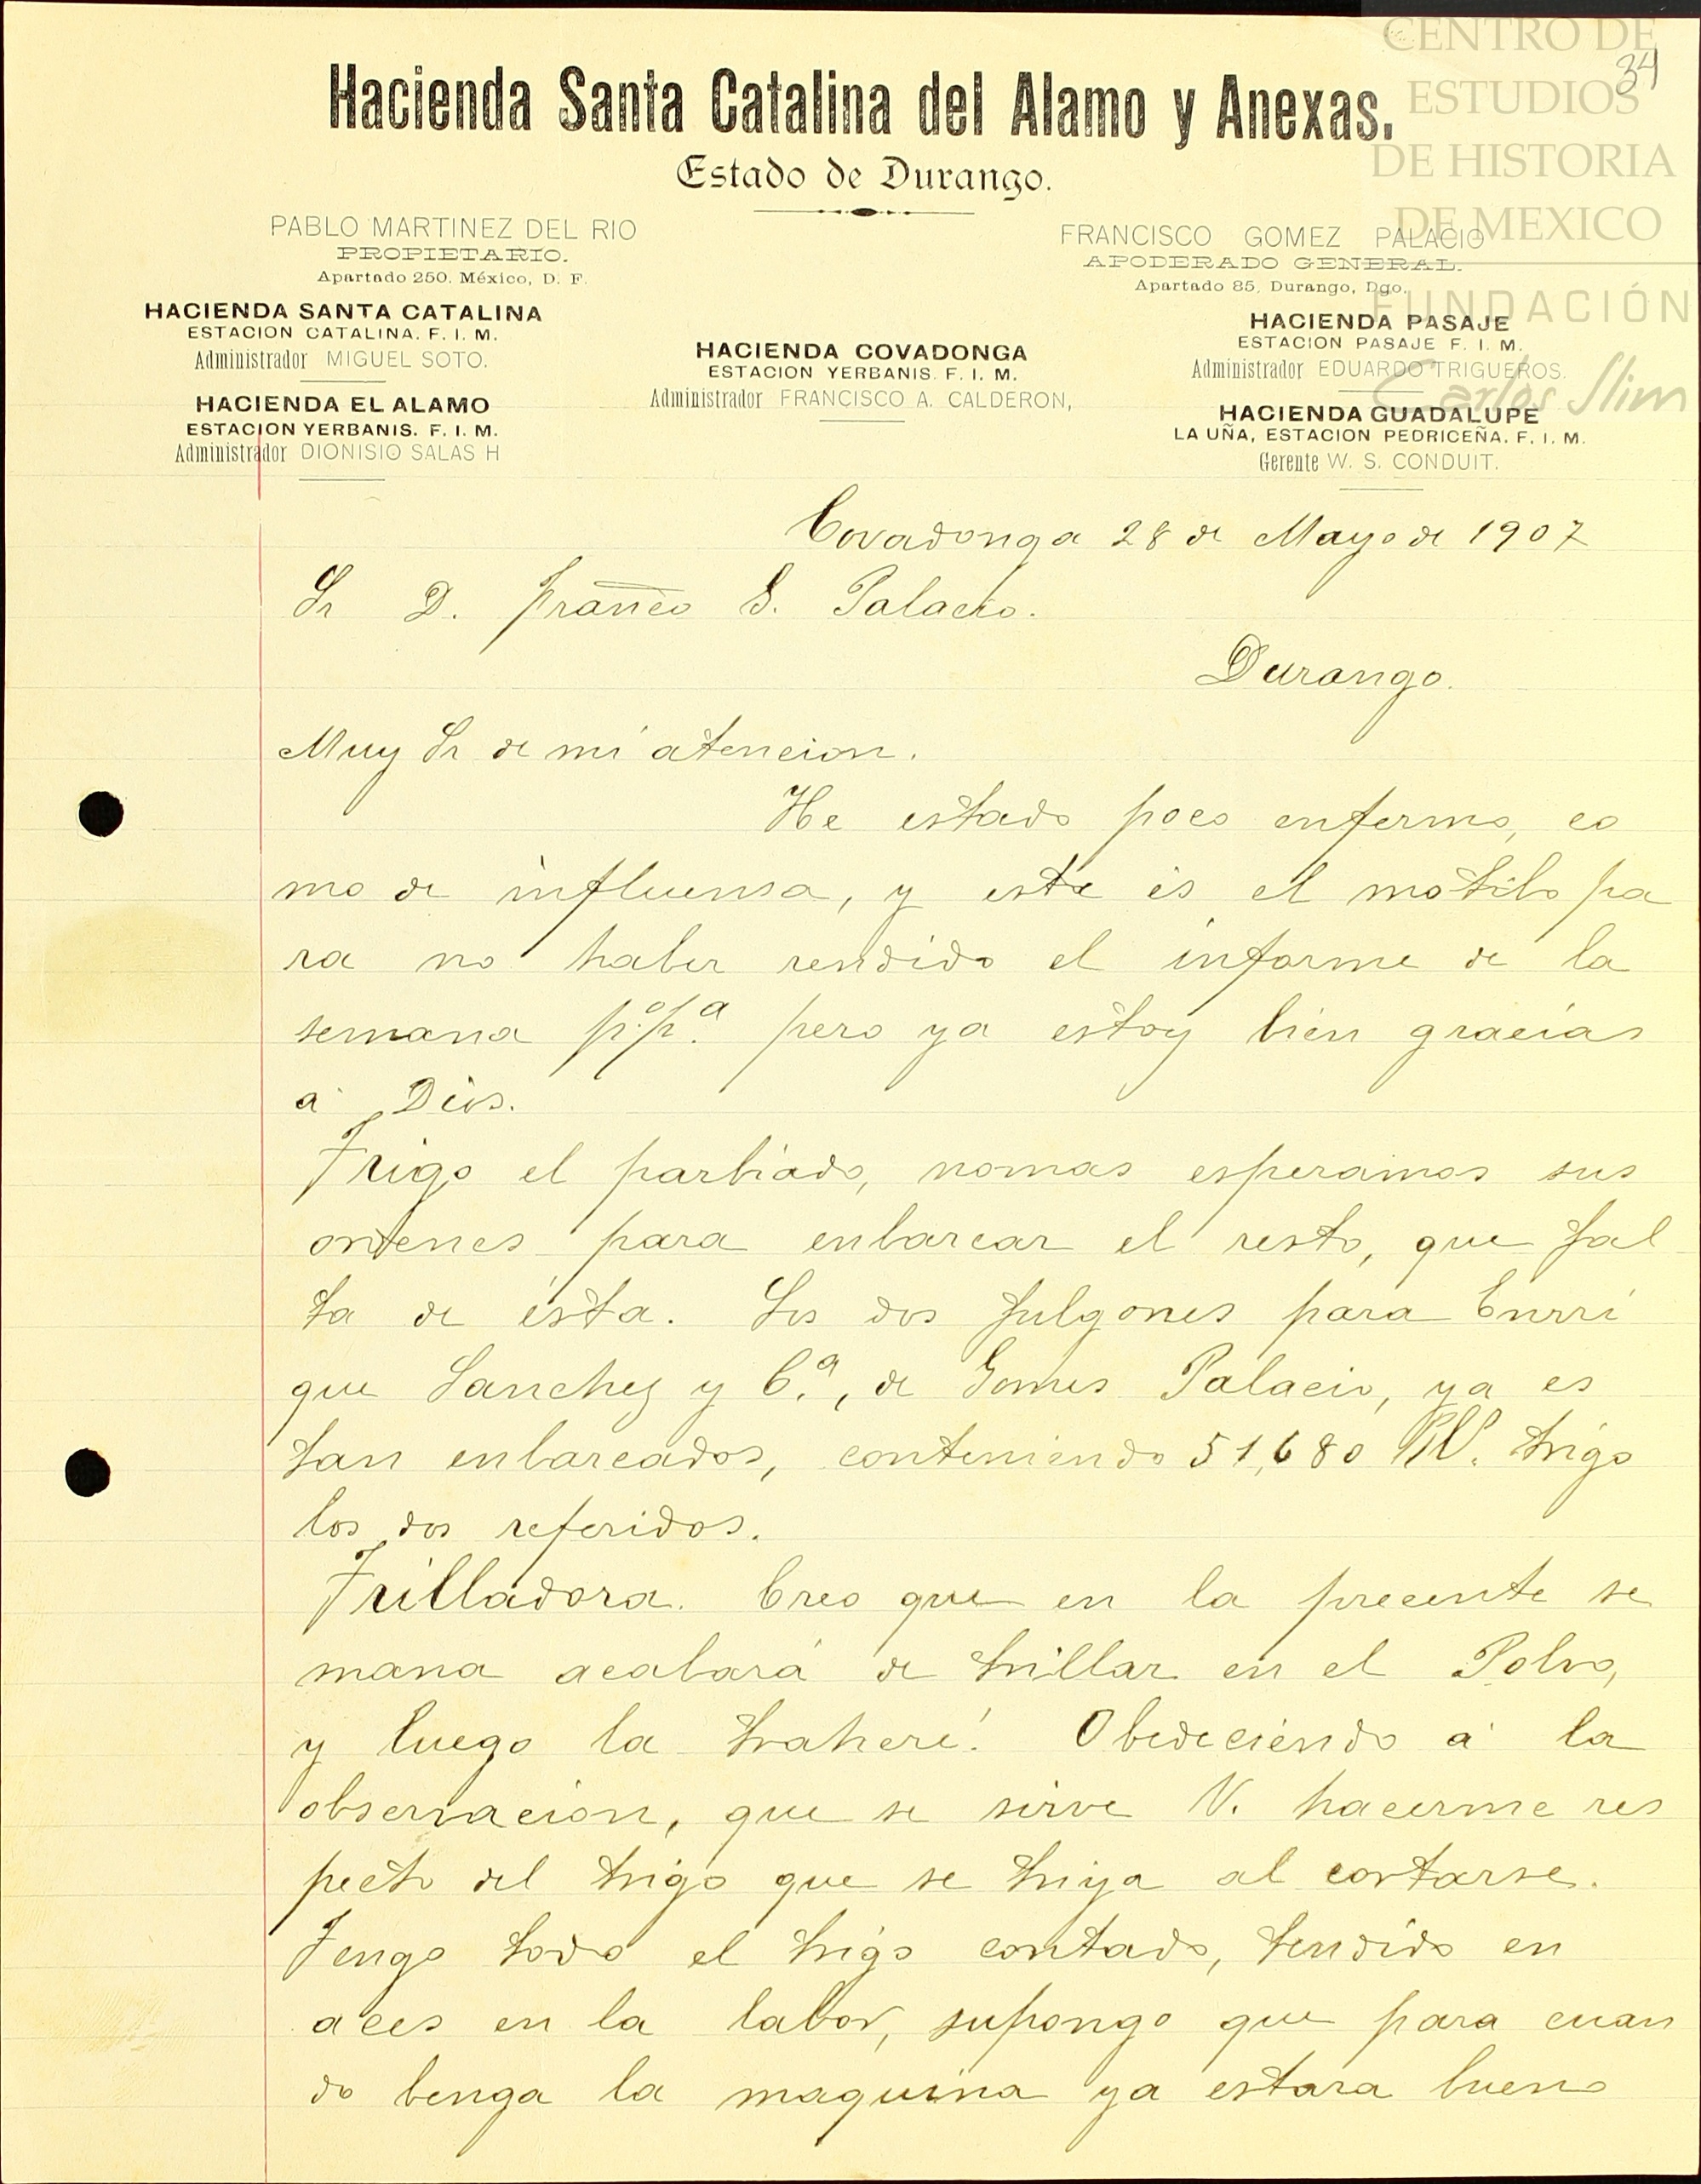 CENTRO DE
ESTUDIOS
DE HISTORIA
DE MEXICO
FUNDACIÓN
Carlos Slim
34
Hacienda Santa Catalina del Alamo y Anexas.
Estado de Durango.
PABLO MARTINEZ DEL RIO
PROPIETARIO.
Apartado 250. México, D. F.
FRANCISCO GOMEZ PALACIO
APODERADO GENERAL.
Apartado 85, Durango, Dgo.
HACIENDA SANTA CATALINA
ESTACION CATALINA. F. I. M.
Administrador MIGUEL SOTO.
HACIENDA EL ALAMO
ESTACION YERBANIS. F. I. M.
Administrador DIONISIO SALAS H
HACIENDA COVADONGA
ESTACION YERBANIS. F. I. M.
Administrador FRANCISCO A. CALDERON,
HACIENDA PASAJE
ESTACION PASAJE F. I. M.
Administrador EDUARDO TRIGUEROS.
HACIENDA GUADALUPE
LA UÑA, ESTACION PEDRICEÑA. F. I. M.
Gerente W. S. CONDUIT.
Covadonga 28 de Mayo de 1907
Sr D. Franco G. Palacio.
Durango.
Muy Sr de mi atencion.
He estado poco enfermo, co
mo de influensa, y este es el motibo pa
ra no haber rendido el informe de la
semana p.º p.ª pero ya estoy bien gracias
á Dios.
Trigo el parbiado, nomas esperamos sus
ordenes para enbarcar el resto, que fal
ta de ésta. Los dos fulgones para Enrri
que Sanchez y C.ª, de Gomes Palacio, ya es
tan enbarcados, conteniendo 51,680 Kl. trigo
los dos referidos.
Trilladora. Creo que en la precente se
mana acabará de trillar en el Polvo,
y luego la traheré. Obedeciendo á la
observacion, que se sirve V. hacerme res
pecto del trigo que se triya al cortarse.
Tengo todo el trigo cortado, tendido en
aces en la labor, supongo que para cuan
do benga la maquina ya estara bueno